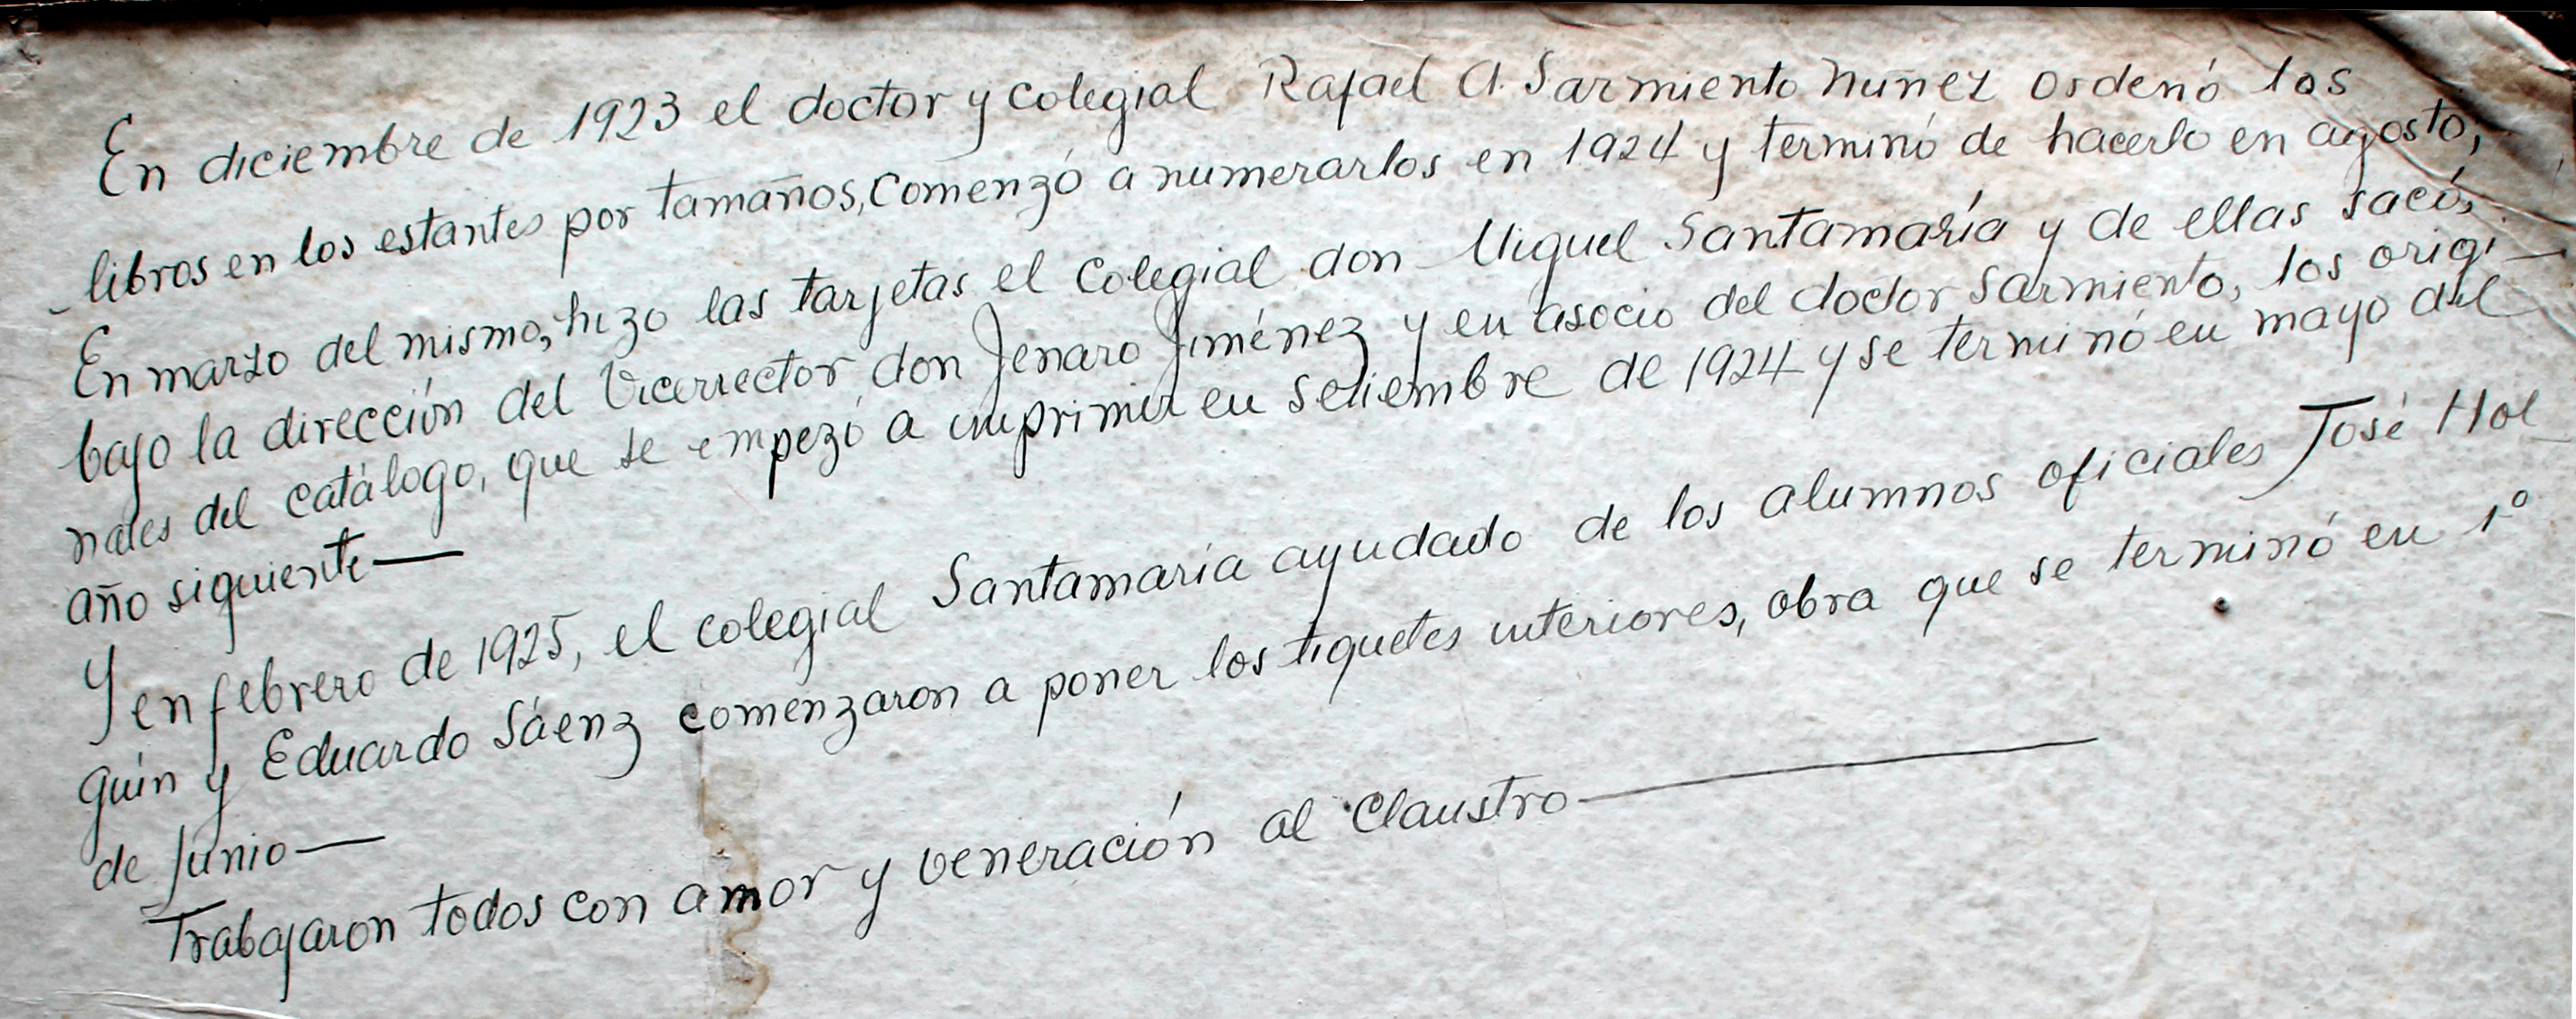 En diciembre de 1923 el doctor y colegial Rafael A. Sarmiento Nuñez ordenó los
libros en los estantes por tamaños, comenzó a numerarlos en 1924 y terminó de hacerlo en agosto;
En marzo del mismo, hizo las tarjetas el colegial don Miguel Santamaría y de ellas sacó,
bajo la dirección del Vicerrector don Jenaro Jiménez y en asocio del doctor Sarmiento, los origi-
nales del catálogo, que se empezó a imprimir en setiembre de 1924 y se terminó en mayo del
año siguiente—
Y en febrero de 1925, el colegial Santamaría ayudado de los alumnos oficiales José Hol-
guín y Eduardo Sáenz comenzaron a poner los tiquetes interiores, obra que se terminó en 1º
de Junio—
Trabajaron todos con amor y veneración al Claustro—